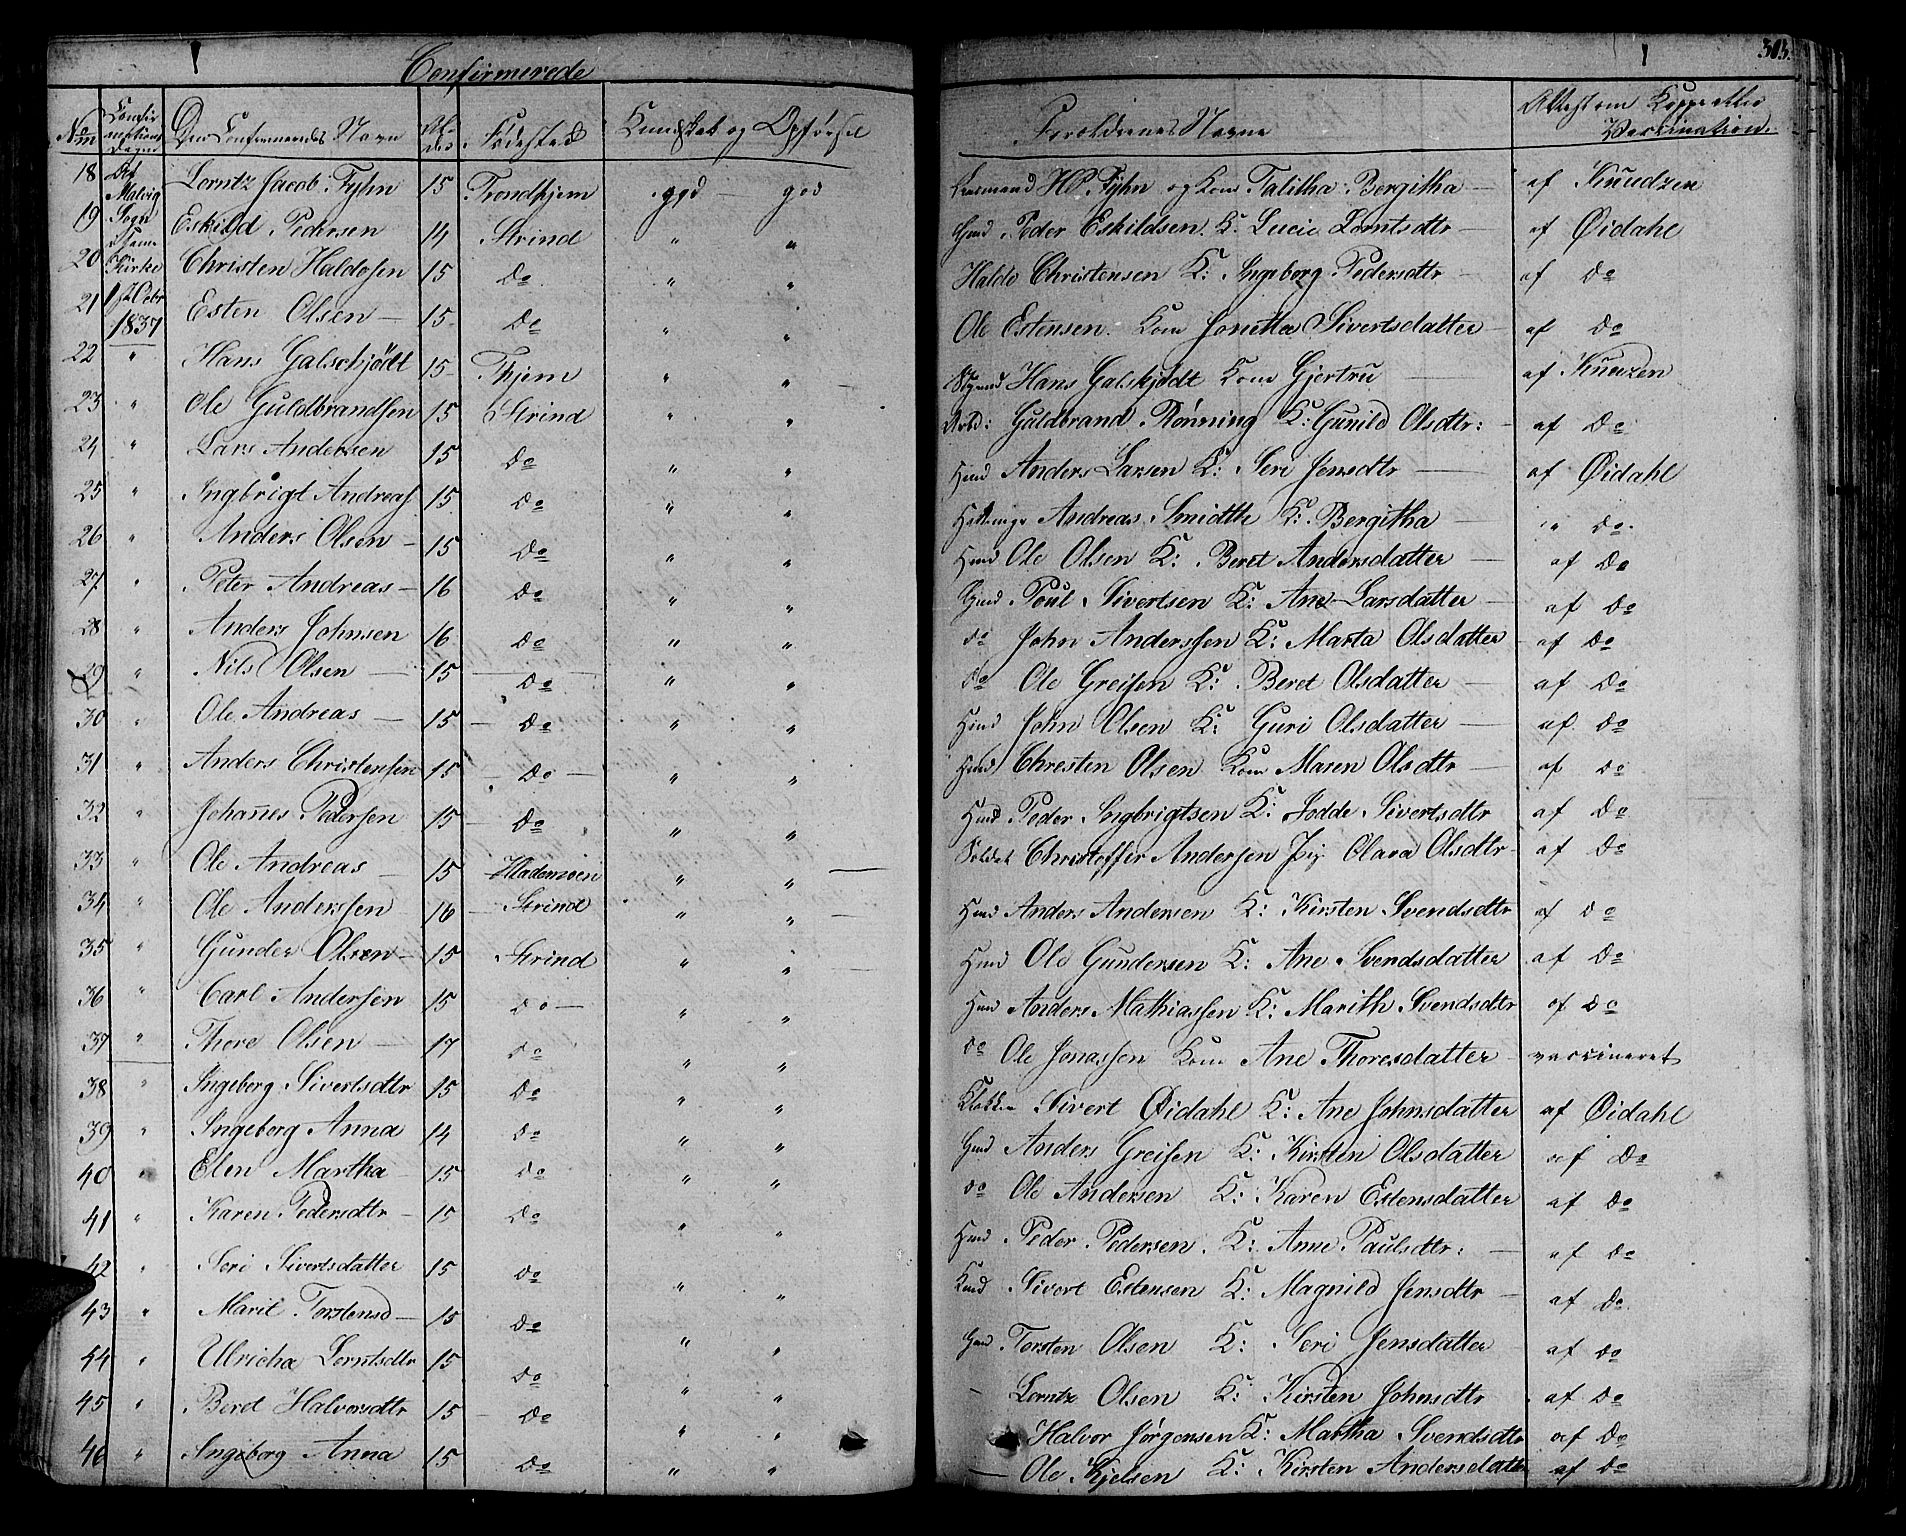 303.
Confirmerede
No Confirmations Dagen Den Confirmeredes Navn Alder Fødested Kundskab og Opførsel Foreldrenes Navne Attest om Kopper eller Vaccination.
18 Af Malvig Lorntz Jacob Fyhn 15 Trondhjem ggd — god Lensmand HP. Fyhn og Kone Talitha Bergitha — af Knudzen
19 Sogn Eskild Pedersen 14 Strind " " Gmd Peder Eskildsen. K. Lucie Lorntsdtr — af Øidahl
20 Kirke Christen Haldosen 15 Do " " Haldo Christensen K: Ingeborg Pedersdtr — af Do
21 1st Octbr 1837 Esten Olsen — 15 Do " " Ole Estensen. Kone Jonetta Sivertsdatter — af Do
22 " Hans Galschjödt 15 Thjem " " — Hans Galskjødt Kone Gjertru — af Knudzen
23 " Ole Guldbrandsen 15 Strind " " Arbd: Guldbrand Rønning K: Gunild Olsdtr: — af Do
24 " Lars Andersen 15 Do " " Hmd Anders Larsen K: Seri Jensdtr — af Øidahl
25 " Ingbrigt Andreas 15 Do " " Andreas Smidth K: Bergitha — " Do.
26 " Anders Olsen — 15 Do " " Hmd Ole Olsen K: Beret Andersdatter — af Do
27 " Peter Andreas — 16 Do " " Gmd Poul Sivertsen K: Ane Larsdatter — af Do
28 " Anders Johnsen 16 Do " " do John Anderssen K: Marta Olsdatter — af Do
29 " Nils Olsen — 15 — Do " " do Ole Greisen K: Beret Olsdatter — af Do
30 " Ole Andreas — 15 — Do " " Hmd John Olsen K: Guri Olsdatter — af Do
31 " Anders Christensen 15 — Do — " " Hmd Chresten Olsen Kone Maren Olsdtr — af do
32 " Johannes Pedersen 15 — Do " " Hmd Peder Ingbrigtsen K: Jodde Sivertsdtr af Do
33 " Ole Andreas — 15 Hlademoen " " — Soldat Christoffer Andersen Pig Olava Olsdtr — af Do
34 " Ole Anderssen 16 — Strind " " — Hmd Anders Andersen K: Kirsten Svendsdtr af Do
35 " Gunder Olsen — 15 Strind " " — Hmd Ole Gundersen K: Ane Svendsdatter af Do
36 " Carl Andersen 15 Do — " " Hmd Anders Mathiassen K: Marith Svendsdtr af Do
37 " Thore Olsen — 17 Do " " do Ole Jonassen Kone Ane Thoresdatter — vaccineret
38 " Ingeborg Sivertsdtr 15 Do " " Klokker Sivert Øidahl K: Ane Johnsdatter af Øidahl
39 " Ingeborg Anna 14 Do " " Gmd Anders Greisen K: Kirsten Olsdatter af Do
40 " Elen Martha 15 Do " " do Ole Andersen K: Karen Estensdatter af Do
41 " Karen Pedersdtr — 15 Do " " Hmd Peder Pedersen. K: Anne Paulsdtr: — af Do
42 " Seri Sivertsdatter 15 Do " " Sivert Estensen K: Magnild Jensdtr — af Do.
43 " Marit Torstensd — 15 Do " " Gmd Torsten Olsen K: Seri Jensdatter — af Do
44 " Ulricha Lorntsdtr 15 Do " " — Lorntz Olsen K: Kirsten Johnsdtr af Do
45 " Beret Halvorsdtr 15 — Do " " Halvor Jørgensen K: Martha Svendsdtr af Do
46 " Ingeborg Anna 15 Do " " — Ole Kjelsen K: Kirsten Andersdatter af Do